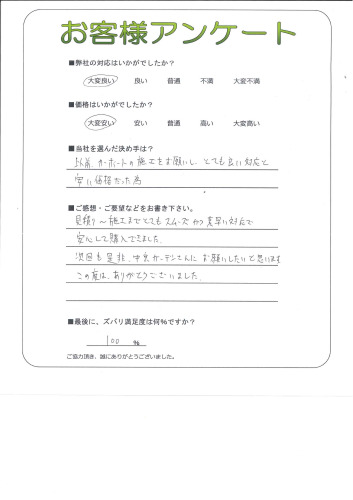 お客様アンケート
■弊社の対応はいかがでしたか?
大変良い 良い 普通 不満 大変不満
■価格はいかがでしたか?
大変安い 安い 普通 高い 大変高い
■当社を選んだ決め手は?
以前、カーポートの施工をお願いし、とても良い対応と
安い価格だった為
■ご感想・ご要望などをお書き下さい。
見積り〜施工までとてもスムーズかつ素早い対応で
安心して購入できました。
次回も是非、中京ガーデンさんにお願いしたいと思います
この度は、ありがとうございました。
■最後に、ズバリ満足度は何%ですか?
100 %
ご協力頂き、誠にありがとうございました。